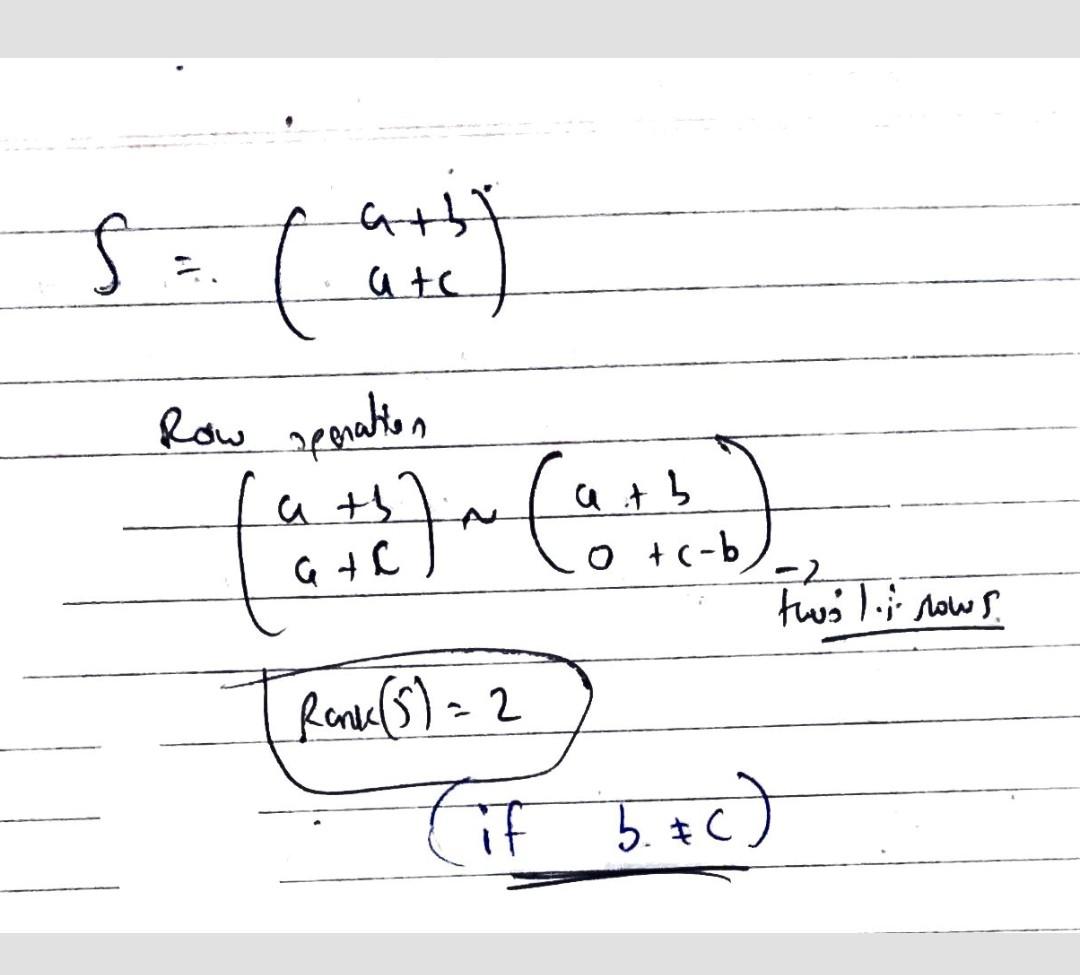 S = ( a+b
a+c )
Row operation
( a +b
a + c ) ~ ( a + b
0 + c-b ) ->
two l.i. rows.
Rank(S) = 2
(if b. ≠ c)